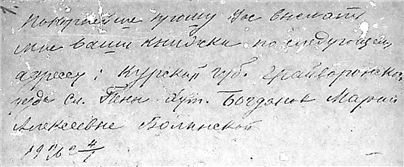 1.
Покорнейше прошу Вас выслать
мне ваши книжки по следующему
адресу: Курской губ. Грайворонско
уезд сл. хут. Богданов Марии
Алексеевне Волинской